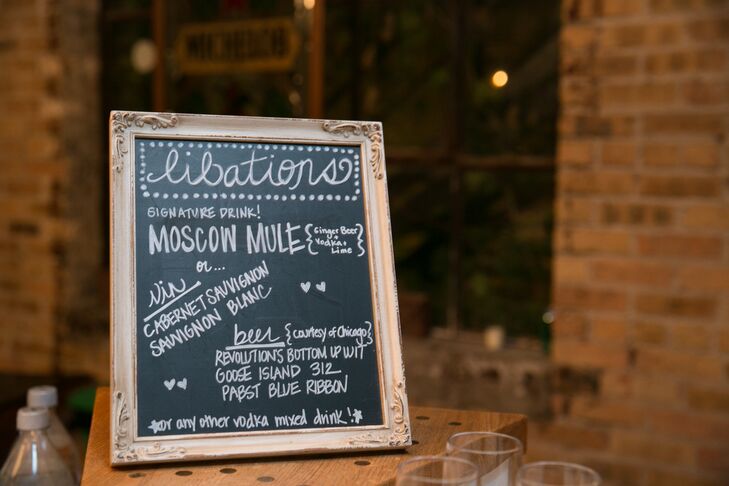 MICHELOB
libations
SIGNATURE DRINK!
MOSCOW MULE {Ginger Beer + Vodka + Lime}
or...
Vin
CABERNET SAUVIGNON
SAUVIGNON BLANC
beer {courtesy of Chicago}
REVOLUTION'S BOTTOM UP WIT
GOOSE ISLAND 312
PABST BLUE RIBBON
*or any other vodka mixed drink!*